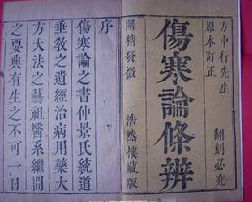 方中行先生
原本訂正 翻刻必究
傷寒論條辨
浩然樓藏版
序
傷寒論之書仲景氏統道
垂教之遺經治病用藥大
方大法之藝祖醫系繼開
之要典有生之不可一日